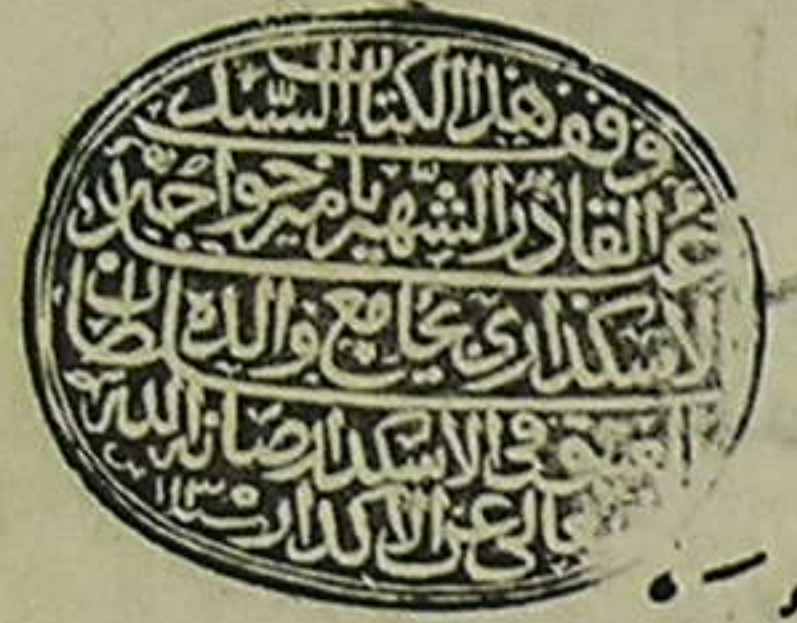 وقف هذا الكتاب السيد
عبد القادر الشهير بامير خواجه
الاسكداري بجامع والده سلطان
العتيق في الاسكدار صانه الله
تعالى عن الاكدار سنه ١١٣